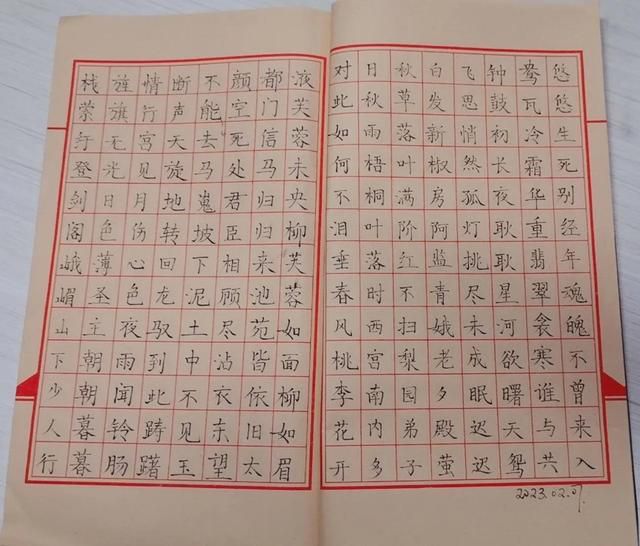 栈萦纡登剑阁峨嵋山下少人行
旌旗无光日色薄圣主朝朝暮暮
情行宫见月伤心色夜雨闻铃肠
断声天旋地转回龙驭到此踌躇
不能去马嵬坡下泥土中不见玉
颜空死处君臣相顾尽沾衣东望
都门信马归归来池苑皆依旧太
液芙蓉未央柳芙蓉如面柳如眉
对此如何不泪垂春风桃李花开
日秋雨梧桐叶落时西宫南内多
秋草落叶满阶红不扫梨园弟子
白发新椒房阿监青娥老夕殿萤
飞思悄然孤灯挑尽未成眠迟迟
钟鼓初长夜耿耿星河欲曙天鸳
鸯瓦冷霜华重翡翠衾寒谁与共
悠悠生死别经年魂魄不曾来入
2023.02.07.